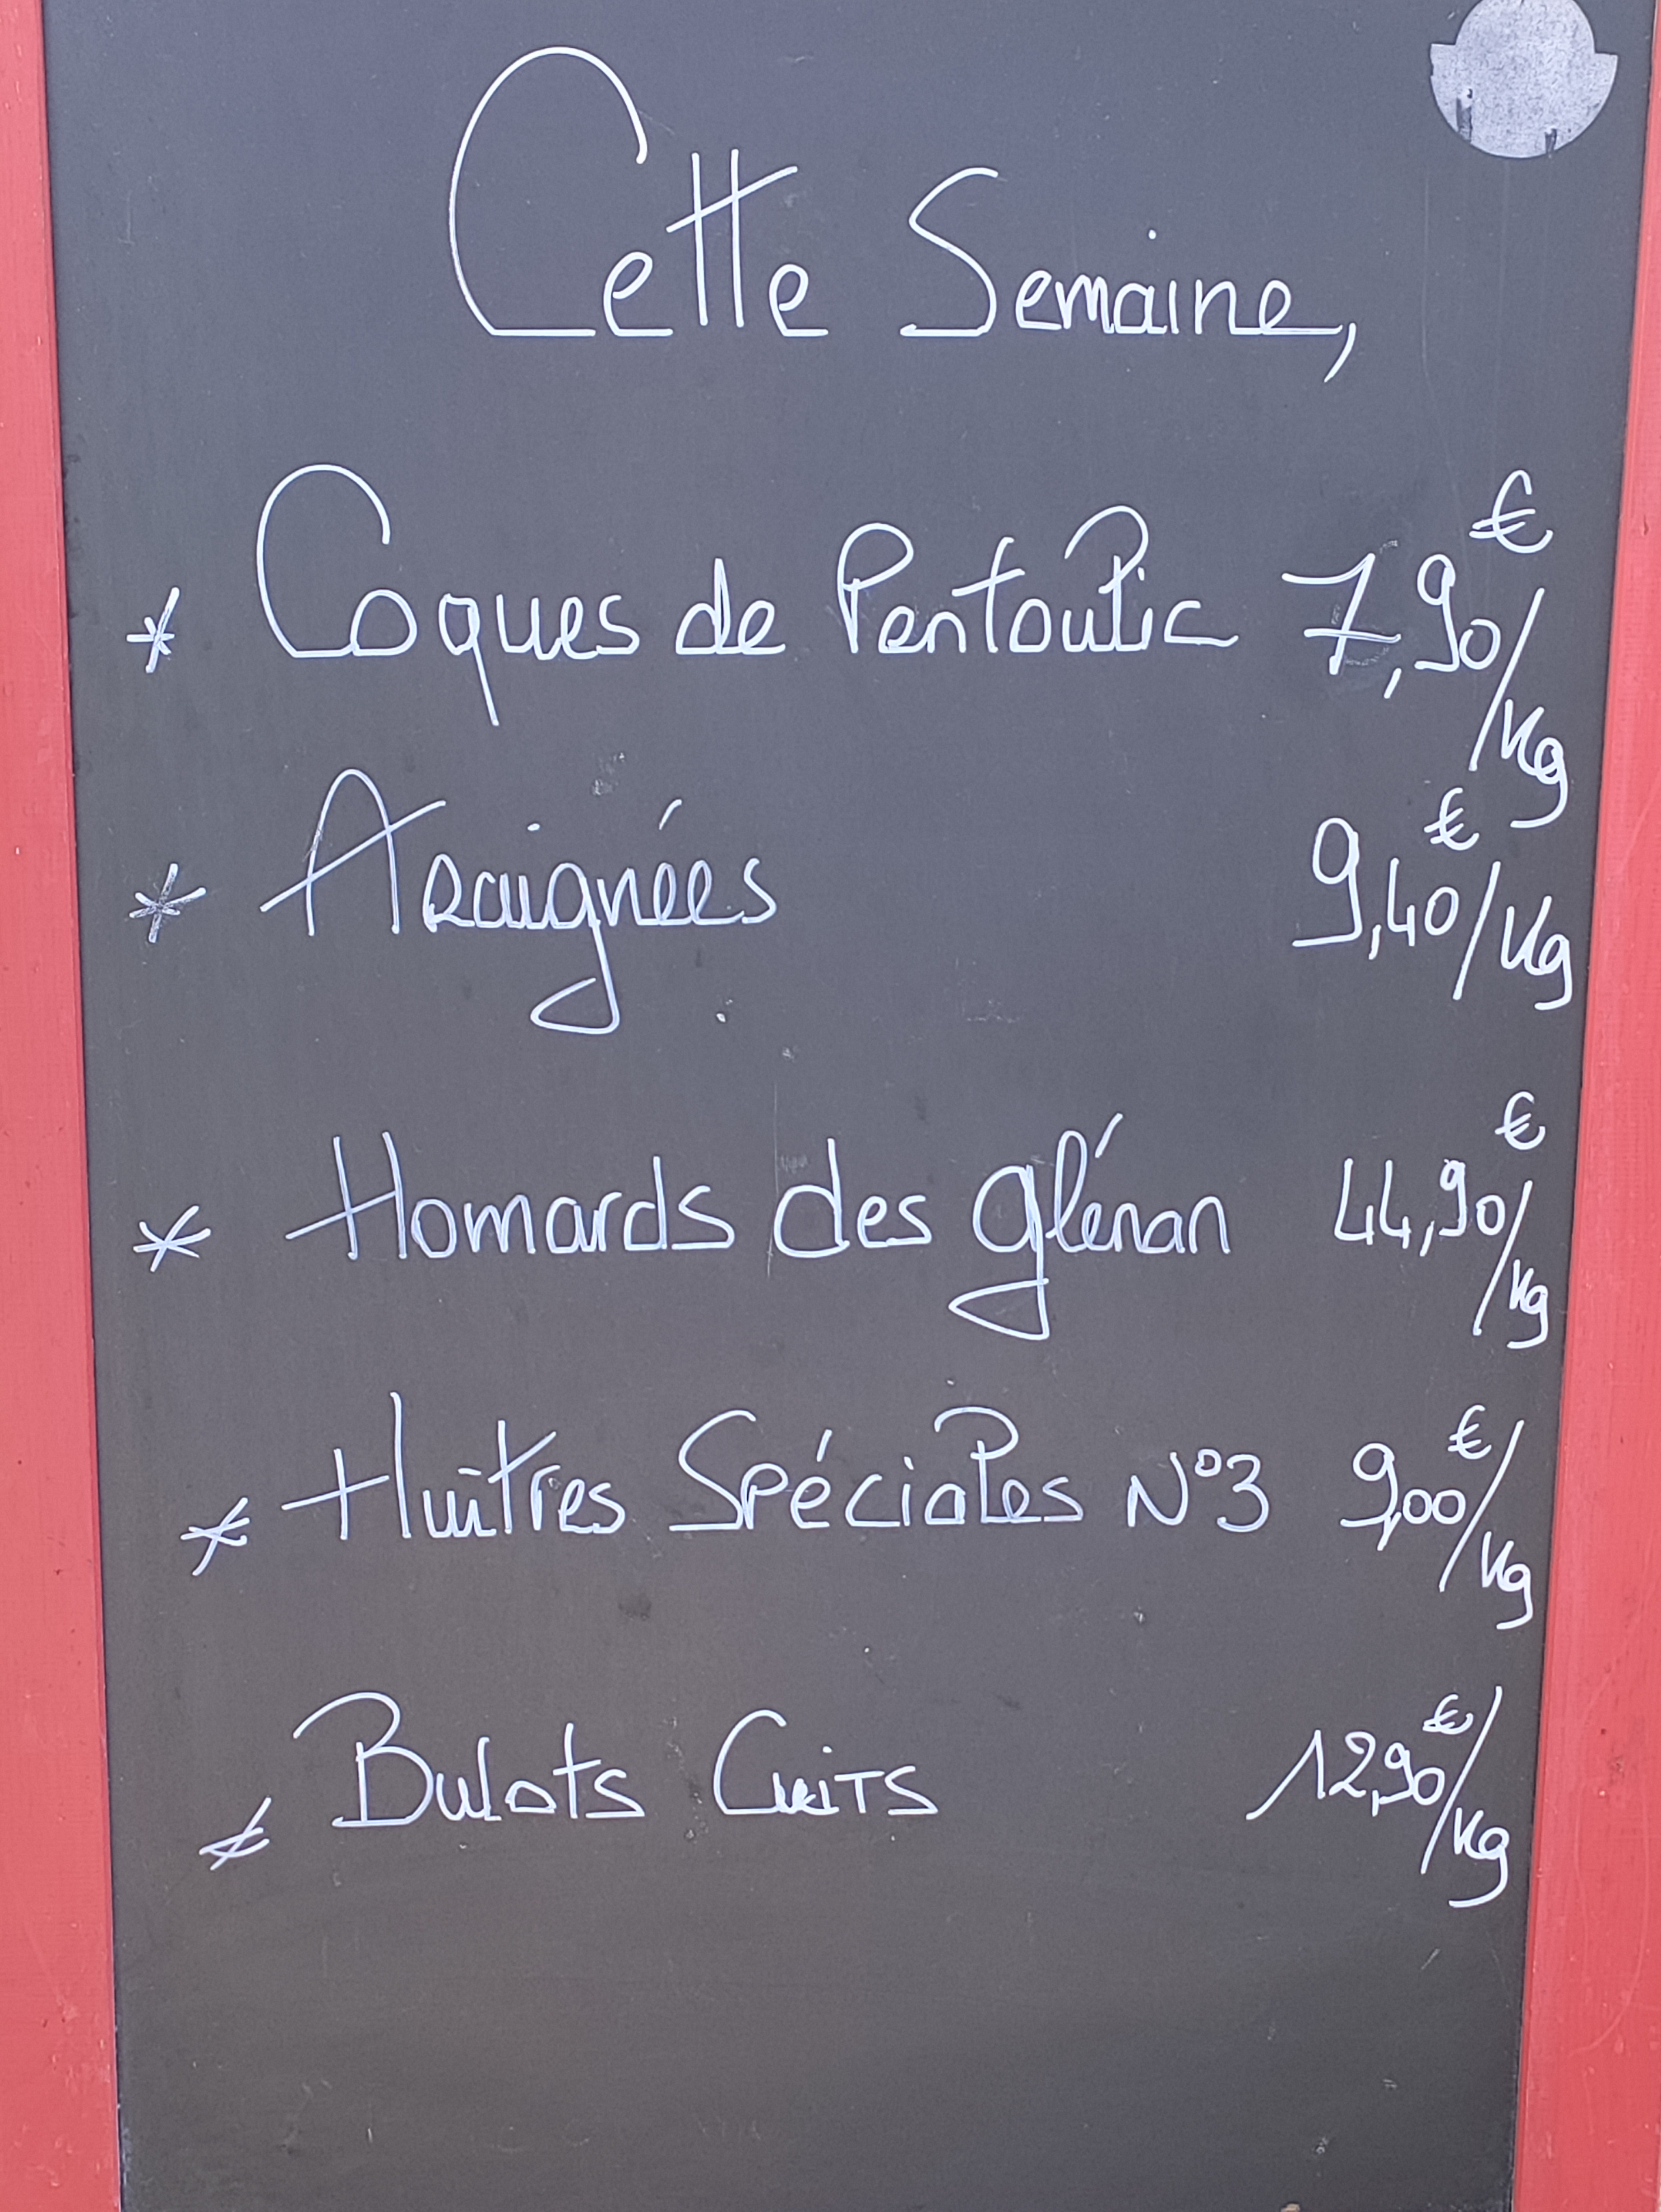 Cette Semaine,
* Coques de Pentoulic 7,90€/Kg
* Araignées 9,40€/Kg
* Homards des glénan 44,90€/Kg
* Huîtres Spéciales N°3 9,00€/Kg
* Bulots Cuits 12,90€/Kg